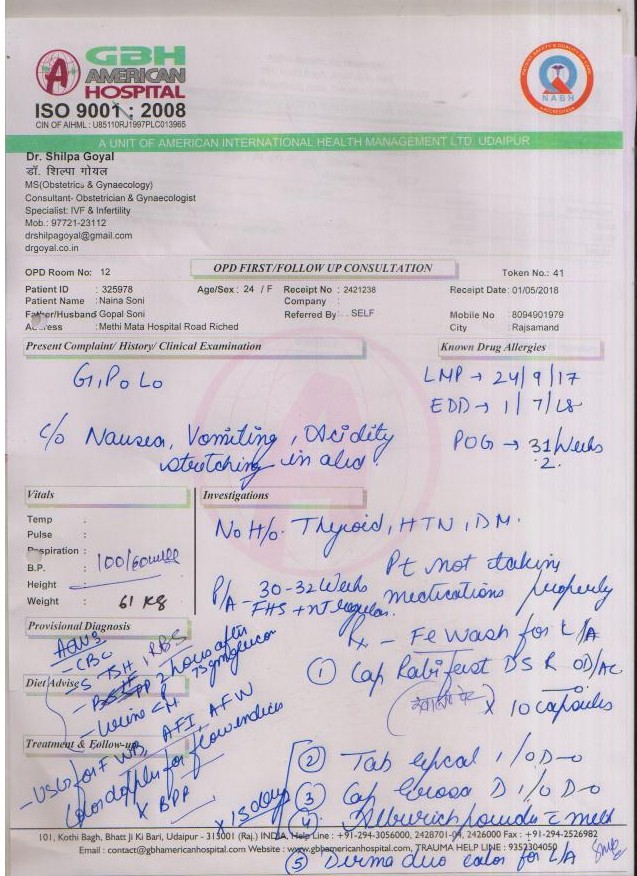 GBH
AMERICAN
HOSPITAL
ISO 9001 : 2008
CIN OF AIHML : U85110RJ1997PLC013965
NABH
A UNIT OF AMERICAN INTERNATIONAL HEALTH MANAGEMENT LTD. UDAIPUR
Dr. Shilpa Goyal
डॉ. शिल्पा गोयल
MS(Obstetrics & Gynaecology)
Consultant- Obstetrician & Gynaecologist
Specialist: IVF & Infertility
Mob.: 97721-23112
drshilpagoyal@gmail.com
drgoyal.co.in
OPD Room No: 12 OPD FIRST/FOLLOW UP CONSULTATION Token No.: 41
Patient ID : 325978 Age/Sex : 24 / F Receipt No : 2421238 Receipt Date: 01/05/2018
Patient Name : Naina Soni Company :
Father/Husband Gopal Soni Referred By : . SELF Mobile No : 8094901979
Address : Methi Mata Hospital Road Riched City : Rajsamand
Present Complaint/ History/ Clinical Examination Known Drug Allergies
G1P0L0 LMP → 24/9/17
EDD → 1/7/18
C/o Nausea, Vomiting, Acidity POG → 31 Weeks
stretching in abd. 2.
Vitals Investigations
Temp :
Pulse :
Respiration :
B.P. : 100/60
Height :
Weight : 61 Kg
No H/o. Thyroid, HTN, DM.
Pt not taking
medications properly
P/A - 30-32 Weeks
FHS +nt regular.
Provisional Diagnosis
Advs:
- CBC
- S. TSH, RBS
PP 2 hours after
75gm glucon
Diet Advise
- Urine
Treatment & Follow-up
- USG for FWB, AFI, AFW
Color doppler for flow indices
x BPP
Rx - Fe Wash for L/A
① Cap Rabifast DSR OD/AC
x 10 capsules
x 15 days
② Tab 1/0 D-0
③ Cap D 1/0 D-0
④ powder c milk
⑤ Derma duo for L/A
101, Kothi Bagh, Bhatt Ji Ki Bari, Udaipur - 313001 (Raj.) INDIA, Help Line : +91-294-3056000, 2428701-04, 2426000 Fax : +91-294-2526982
Email : contact@gbhamericanhospital.com Website : www.gbhamericanhospital.com, TRAUMA HELP LINE : 9352304050